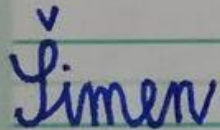 Šimen